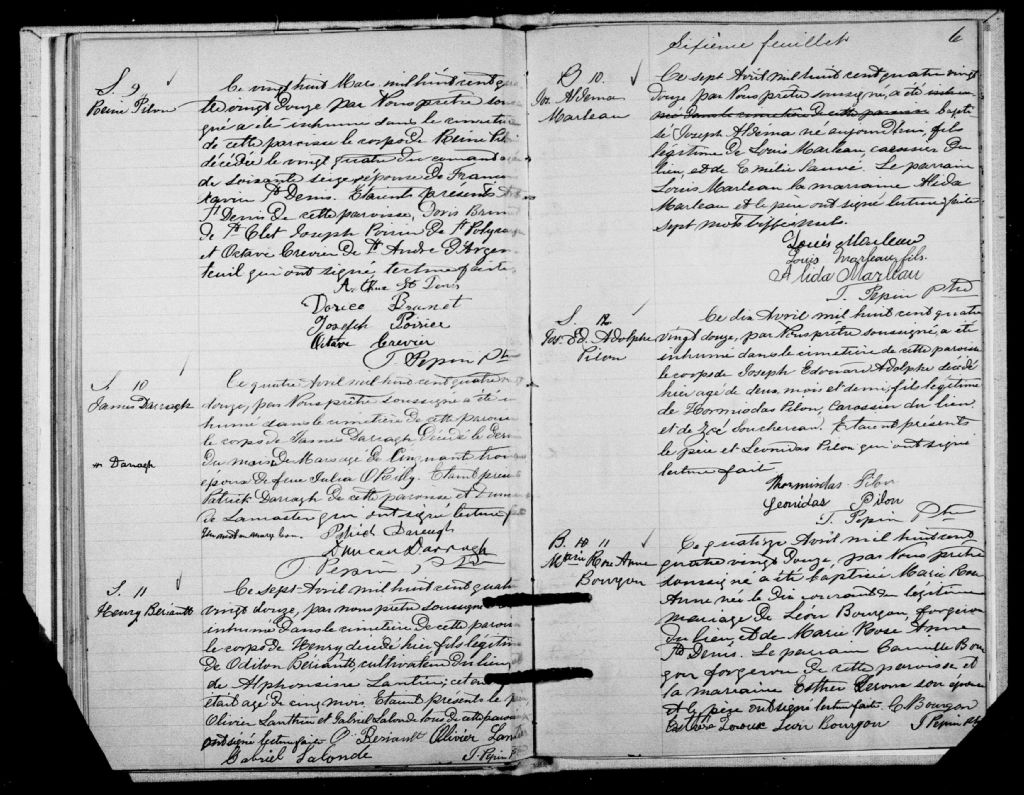 S. 9
Reine Pilon
Ce vingt huit Mars mil huit cent qua
tre vingt douze par Nous prêtre sous
gné a été inhumé dans le cimetière
de cette paroisse le corps de Reine Pil
décédée le vingt quatre du courant
de soixante seize épouse de Franc
xavier St Denis. Etaient présents
St Denis de cette paroisse, Doris Brun
de St Clet Joseph Poirier de St Polycar
et Octave Crevier de St André D'Argen
teuil qui ont signé lecture faite.
A. Chue St Denis
Dorice Brunet
Joseph Poirier
Octave Crevier
T. Pepin Ptre
S. 10
James Darragh
Darragh
Ce quatre Avril mil huit cent quatre vi
douze, par Nous prêtre soussigné a été i
humé dans le cimetière de cette paroi
le corps de James Darragh décédé le dern
du mois de Mars agé de cinquante trois
epoux de feue Julia O'Rilly. Etaient prése
Patrick Darragh de cette paroisse et Dunc
de Lancaster qui ont signé lecture f
Patrick Darragh
Duncan Darragh
T Pepin Ptre
S. 11
Henry Beriault
Ce sept Avril mil huit cent quatre
vingt douze, par nous prêtre soussigné
inhumé dans le cimetière de cette paroi
le corps de Henry décédé hier fils légitim
de Odilon Bériault, cultivateur du lieu
de Alphonsine Lantier; cet en
était agé de cinq mois. Etaient présents le p
Olivier Lanthier et Gabriel Lalonde tous de cette parois
ont signé lecture faite O Beriault Olivier Lan
Gabriel Lalonde T. Pepin P
Sixième feuillet
6
B 10.
Jos. Adema
Marleau
Ce sept Avril mil huit cent quatre vingt
douze, par Nous prêtre soussigné, a été inhu
mé dans le cimetière de cette paroisse bapti
sé Joseph Adema né aujourd'hui, fils
légitime de Louis Marleau carossier du
lieu, et de Emilie Sauvé. Le parrain
Louis Marleau la marraine Alida
Marleau et le père ont signé lecture faite
Sept mots biffés nuls.
Louis Marleau
Louis Marleau fils.
Alida Marleau
T. Pepin Ptre
S. 12
Jos. Ed. Adolphe
Pilon
Ce dix Avril mil huit cent quatre
vingt douze, par Nous prêtre soussigné a été
inhumé dans le cimetière de cette paroisse
le corps de Joseph Edouard Adolphe décédé
hier agé de deux mois et demi, fils légitime
de Hormisdas Pilon, Carossier du lieu
et de Zoé Souchereau. Etaient présents
le père et Léonidas Pilon qui ont signé
lecture fait
Hormisdas Pilon
Leonidas Pilon
T. Pepin Ptre
B. 11
Marie Rose Anne
Bourgon
Ce quatorze Avril mil huit cent
quatre vingt douze, par Nous prêtre
soussigné a été baptisée Marie Rose
Anne née le dix courant du légitime
mariage de Léon Bourgon, forgeron
du lieu, et de Marie Rose Anne
St Denis. Le parrain Camille Bour
gon forgeron de cette paroisse et
la marraine Esther Leroux son épouse
et le père ont signé lecture faite C Bourgon
Esther Leroux Léon Bourgon T Pepin Ptre